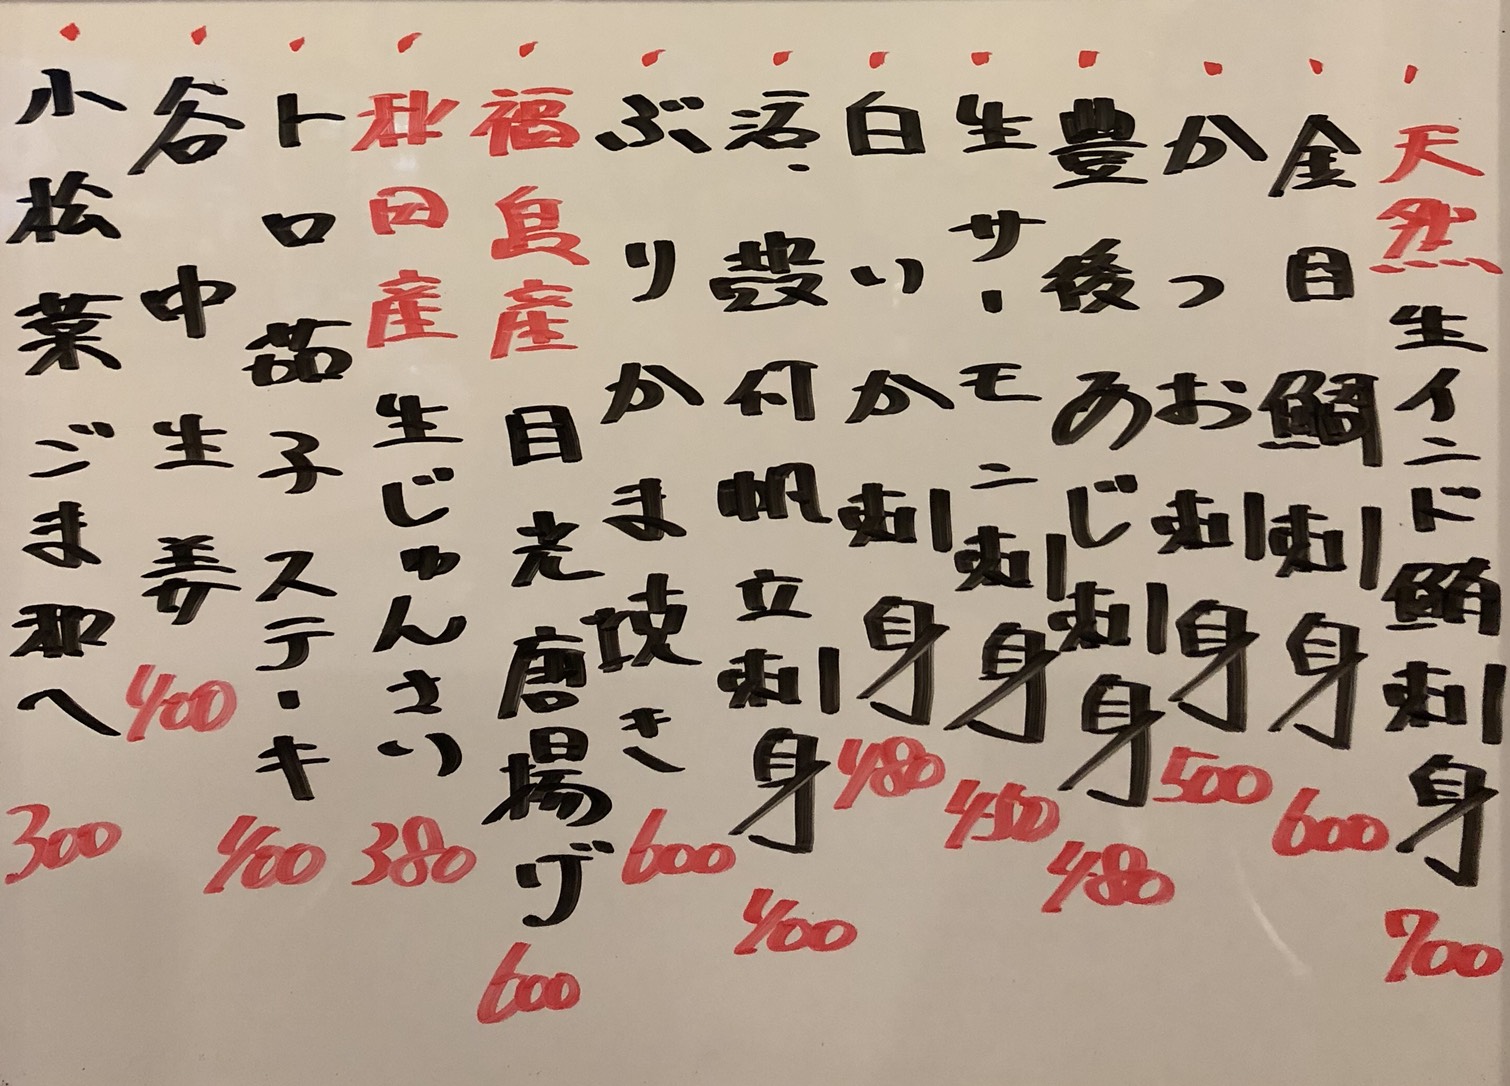 天然生インド鮪刺身 700
金目鯛刺身 600
かつお刺身 500
豊後あじ刺身 480
生サーモン刺身 450
白いか刺身 480
活殻付帆立刺身 400
ぶりかま焼き 600
福島産目光唐揚げ 600
秋田産生じゅんさい 380
トロ茄子ステーキ 400
谷中生姜 400
小松菜ごま和へ 300